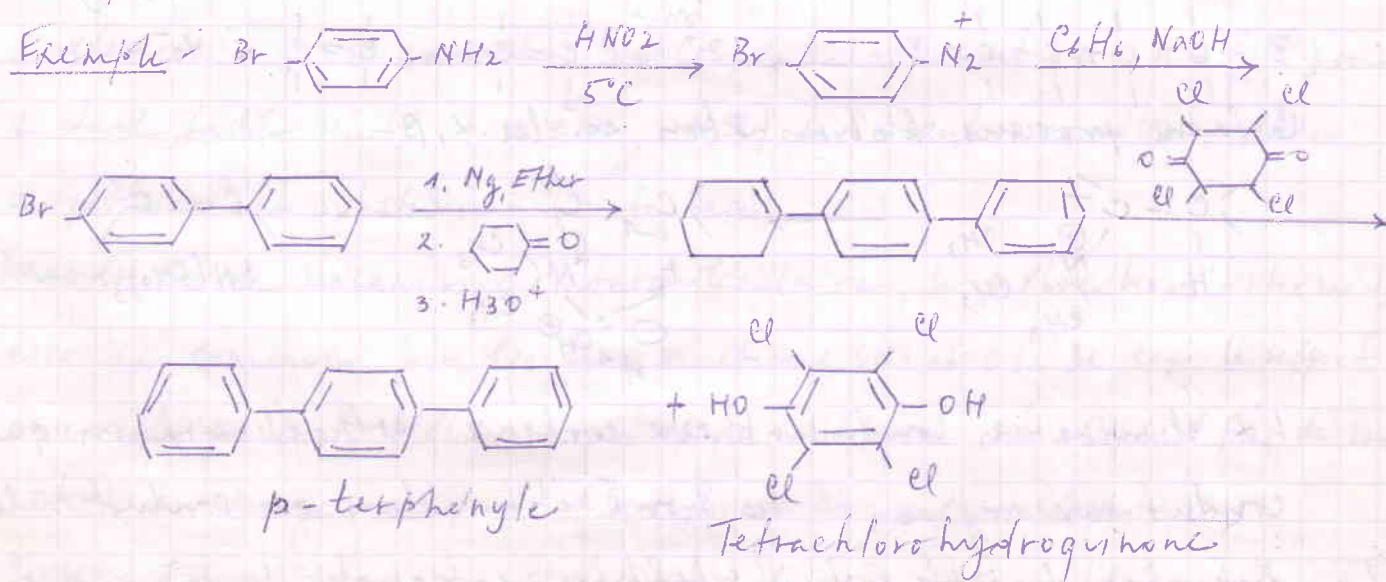 Exemple : Br NH2 HNO2 5°C Br N2 + C6H6, NaOH
Cl Cl
O O
Cl Cl
Br 1. Mg, Ether
2. O
3. H3O+
Cl Cl
+ HO OH
Cl Cl
p-terphényle
Tetrachlorohydroquinone